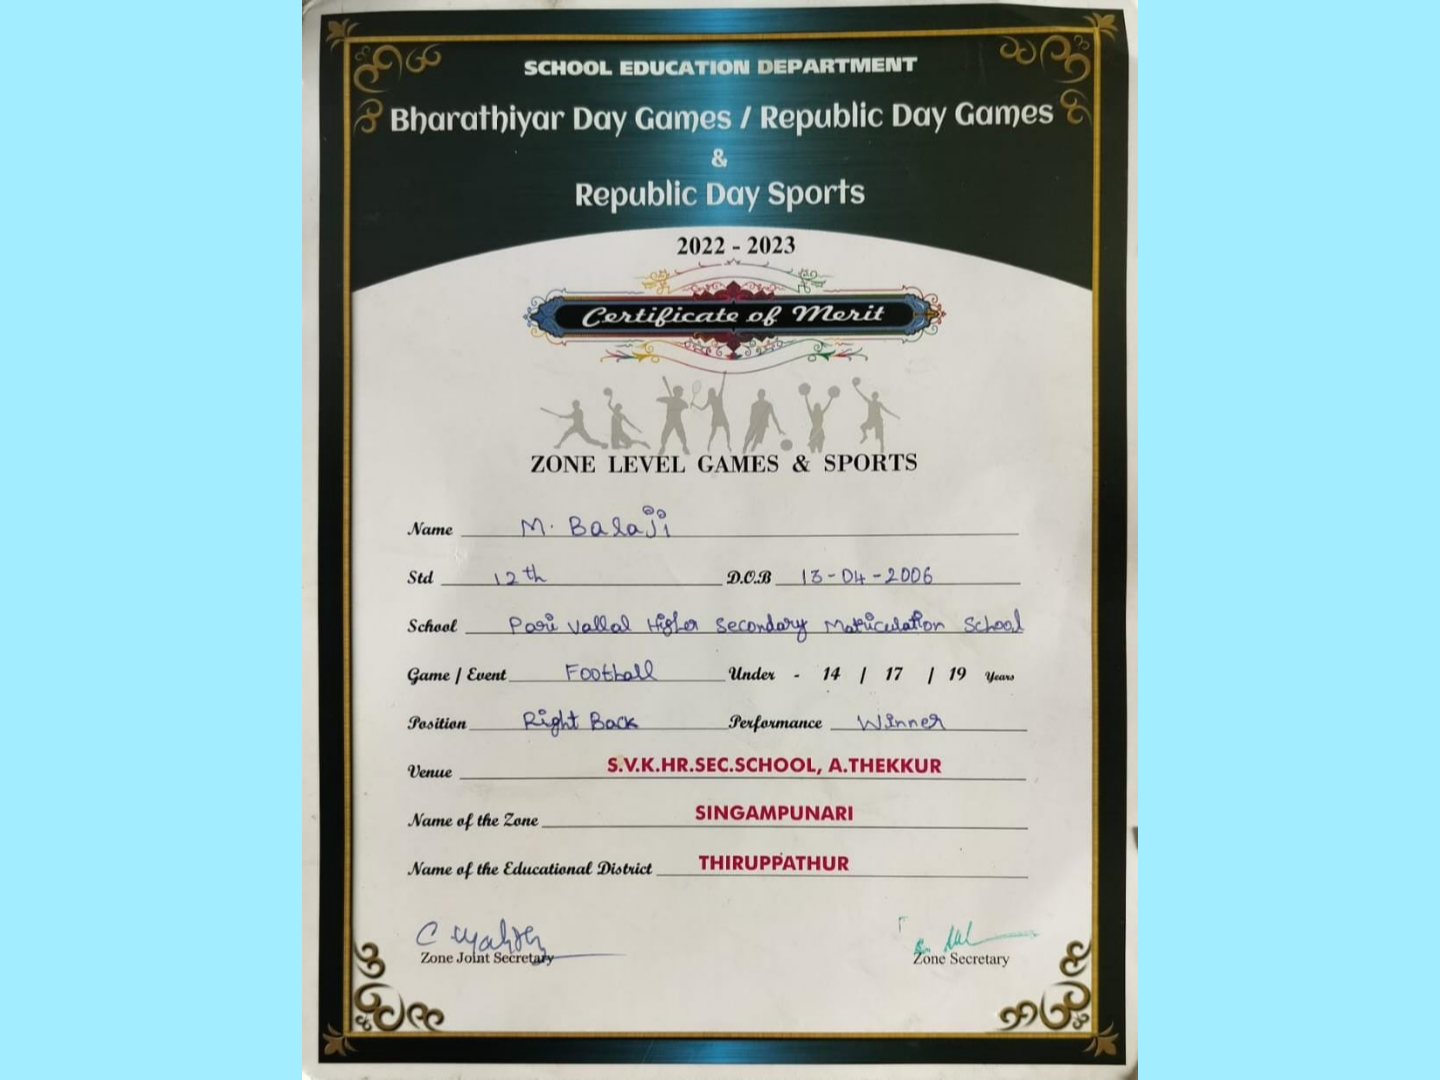 SCHOOL EDUCATION DEPARTMENT
Bharathiyar Day Games / Republic Day Games
&
Republic Day Sports
2022 - 2023
Certificate of Merit
ZONE LEVEL GAMES & SPORTS
Name M. Balaji
Std 12th D.O.B 13-04-2006
School Pari Vallal Higher Secondary Matriculation School
Game / Event Football Under - 14 / 17 / 19 Years
Position Right Back Performance Winner
Venue S.V.K.HR.SEC.SCHOOL, A.THEKKUR
Name of the Zone SINGAMPUNARI
Name of the Educational District THIRUPPATHUR
Zone Joint Secretary Zone Secretary